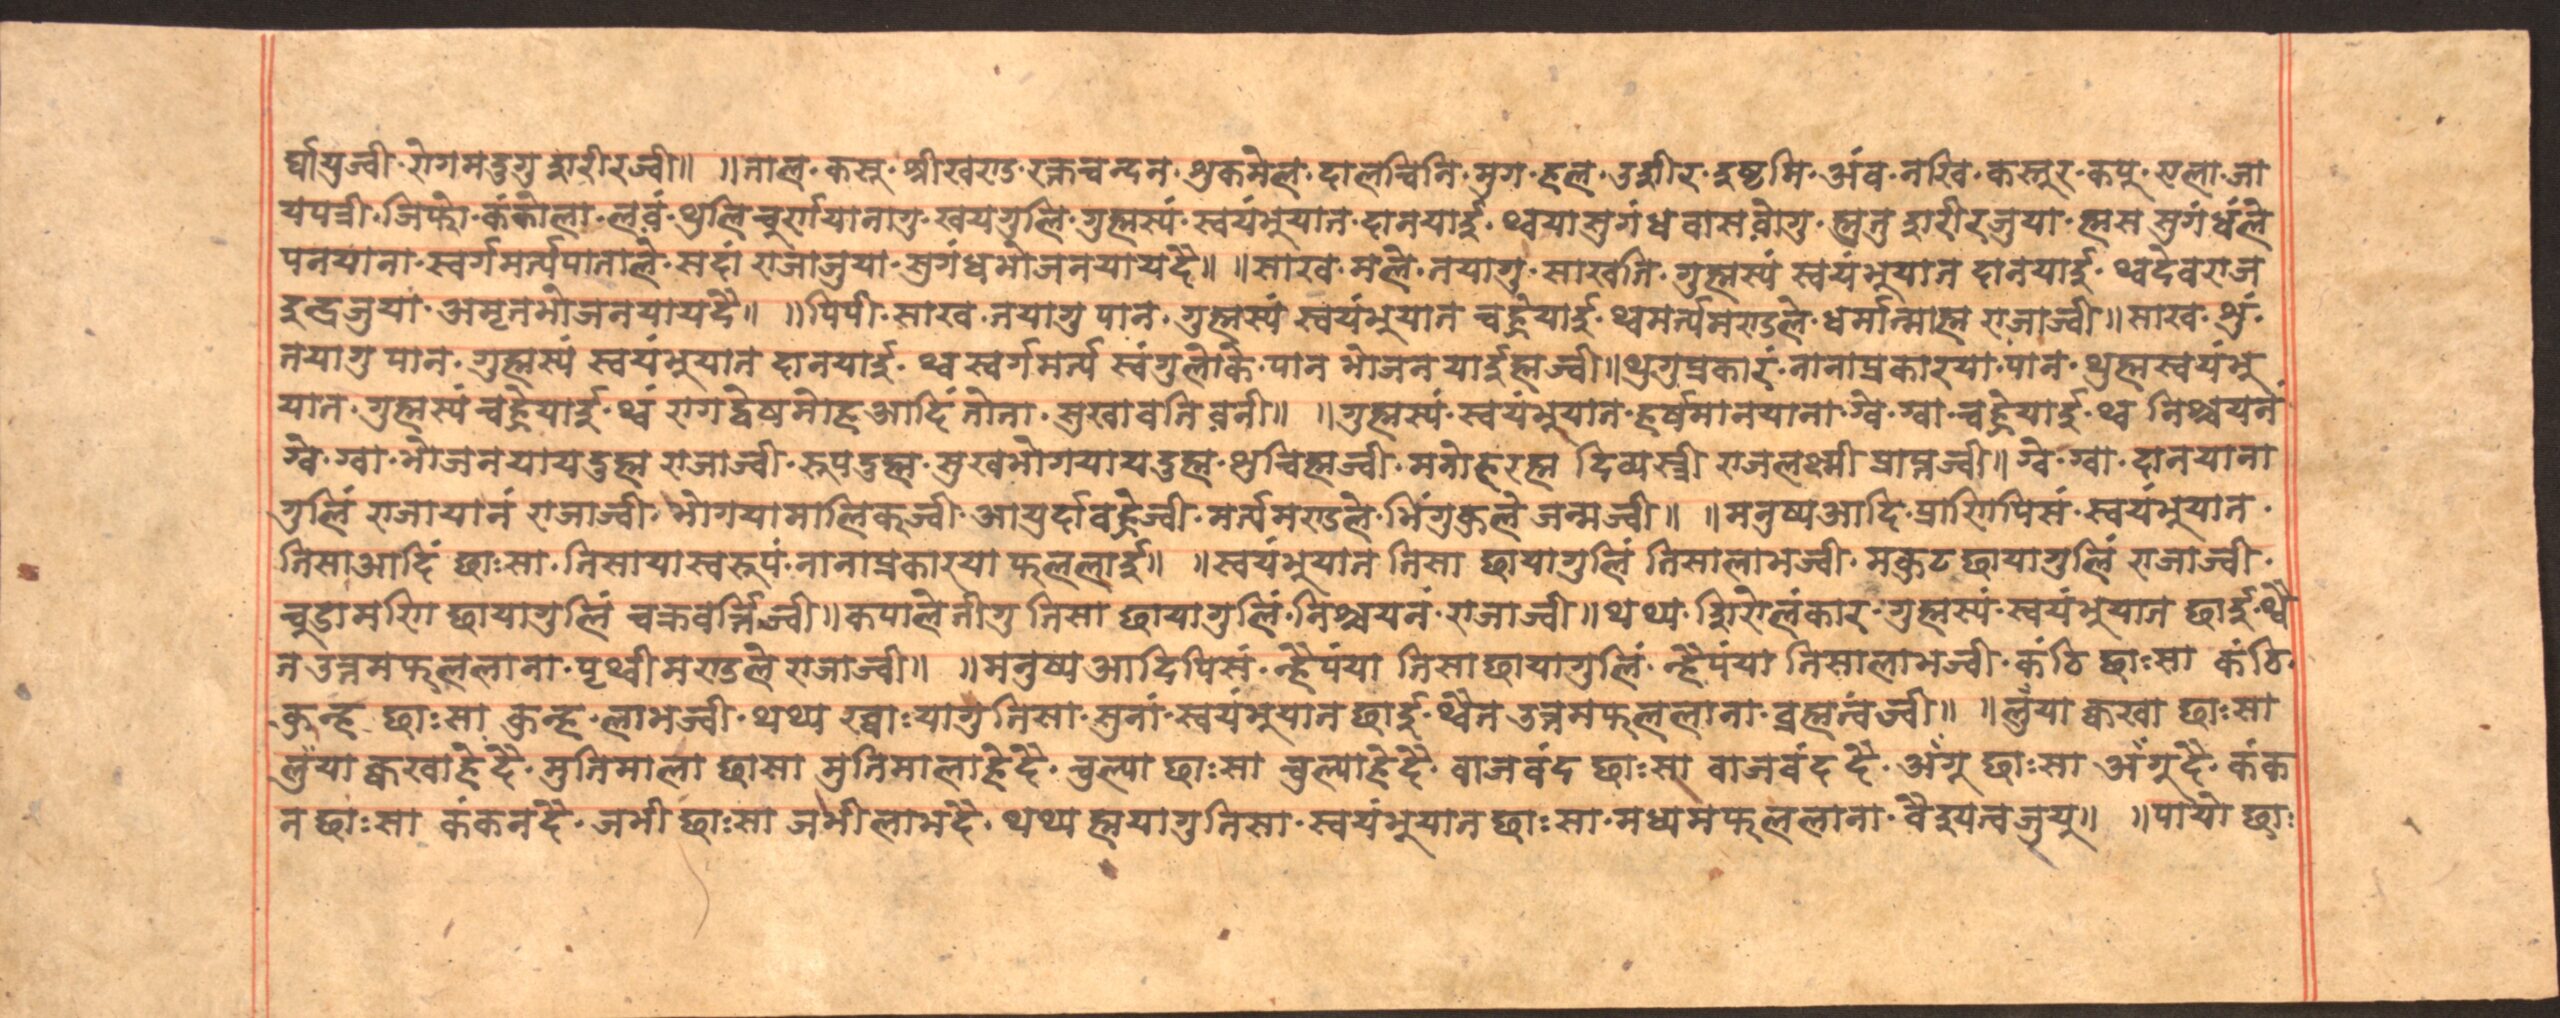 र्घायुज्वी॰ रोगमदुगु शरीरज्वी॥ ॥नाल॰ कस्न॰ श्रीखण्ड॰ रक्तचन्दन॰ शुकमेल॰ दालचिनि॰ मुग॰ हल॰ उशीर॰ दुष्टमि॰ अंब॰ नखि॰ कस्तुर॰ कपु॰ एला॰ जा
यपत्री॰ जिफो॰ कंकोला॰ लवं॰ थुलि चुर्णयानागु॰ खयगुलि॰ गुह्मस्यं॰ स्वयंभुयात॰ दानयाई॰ थ्वया सुगंध वासवोगु॰ ह्मनु शरीरजुया॰ ह्मस सुगंधंले
पनयाना॰ स्वर्गमर्त्यपाताले॰ सदां राजाजुया॰ सुगंधभोजनयायदै॥ ॥साख॰ मले॰ नयागु॰ साखति॰ गुह्मस्यं स्वयंभुयात दानयाई॰ थ्वदेवराज
इन्द्रजुया॰ अमृतभोजनयायदै॥ ॥पिपी॰ साख॰ नयागु पान॰ गुह्मस्यं स्वयंभुयात चढेयाई॰ थ्वमर्त्यमण्डले॰ धर्मात्माह्म राजाज्वी॥ साख॰ शुं॰
नयागु पान॰ गुह्मस्यं स्वयंभुयात दानयाई॰ थ्व स्वर्गमर्त्य स्वंगुलोके॰ पान भोजनयाईह्मज्वी॥ थुगुप्रकारं॰ नानाप्रकारया॰ पान॰ थुह्मस्वयंभु
यात॰ गुह्मस्यं चढेयाई॰ थ्वं रागद्वेषमोहआदिं तोता॰ सुखावति वनी॥ ॥गुह्मस्यं॰ स्वयंभुयात॰ हर्षमानयाना॰ ग्वे॰ ग्वा॰ चढेयाई॰ थ्व निश्चयनं
ग्वे॰ ग्वा॰ भोजनयायदुह्म राजाज्वी॰ रूपदुह्म॰ सुखभोगयायदुह्म॰ शुचिह्मज्वी॰ मनोहरह्म दिव्यस्त्री राजलक्ष्मी प्राप्तज्वी॥ ग्वे॰ ग्वा॰ दानयाना
गुलिं राजायानं राजाज्वी॰ भोगयामालिकज्वी॰ आयुर्दावढेज्वी॰ मर्त्यमण्डले॰ भिंगुकुले जन्मज्वी॥ ॥मनुष्यआदि॰ प्राणिपिसं॰ स्वयंभुयात॰
तिसाआदिं छाःसा॰ तिसायास्वरूपं॰ नानाप्रकारया फललाई॥ ॥स्वयंभुयात तिसा छायागुलिं तिसालाभज्वी॰ मकुट छायागुलिं राजाज्वी॰
चुडामणि छायागुलिं चक्रवर्त्तिज्वी॥ कपालेतीगु तिसा छायागुलिं॰ निश्चयनं॰ राजाज्वी॥ थथ्य॰ शिरोलंकार॰ गुह्मस्यं॰ स्वयंभुयात छाई॰ थ्वै
त उत्तमफललाना॰ पृथ्वीमण्डले राजाज्वी॥ ॥मनुष्यआदिपिसं॰ न्हैपंया तिसाछायागुलिं॰ न्हैपंया तिसालाभज्वी॰ कंठि छाःसा कंठि॰
कुन्ह छाःसा कुन्ह॰ लाभज्वी॰ थथ्य ख्वाःयागुतिसा॰ सुनां॰ स्वयंभुयात छाई॰ थ्वैत उत्तमफललाना॰ ब्रह्मत्वंज्वी॥ ॥लुँया क्वखा छाःसा
लुँया क्वखाहेदै॰ मुतिमाला छासा मुतिमालाहेदै॰ चुल्या छाःसा चुल्याहेदै॰ वाजवंद छाःसा वाजवंद दै॰ अंगु छाःसा अंगुदै॰ कंक
न छाःसा कंकनदै॰ जभी छाःसा जभीलाभदै॰ थथ्य ह्मयागुतिसा॰ स्वयंभुयात छाःसा॰ मध्यमफललाना॰ वैदुयत्वजुयु॥ ॥पायो छाः